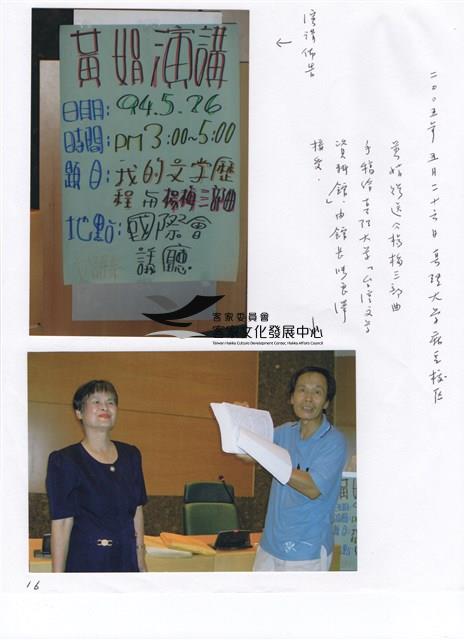 黃娟演講
日期:94.5.26
時間:PM3:00~5:00
題目:我的文学歷
程与楊梅三部曲
地點:國際會
議廳
演講佈告
←
二○○五年五月二十六日真理大学麻豆校区
黃娟贈送《楊梅三部曲
手稿給真理大学「台湾文学
資料館」由館長張良澤
接受。
客家委員會
客家文化發展中心
Taiwan Hakka Culture Development Center, Hakka Affairs Council
16